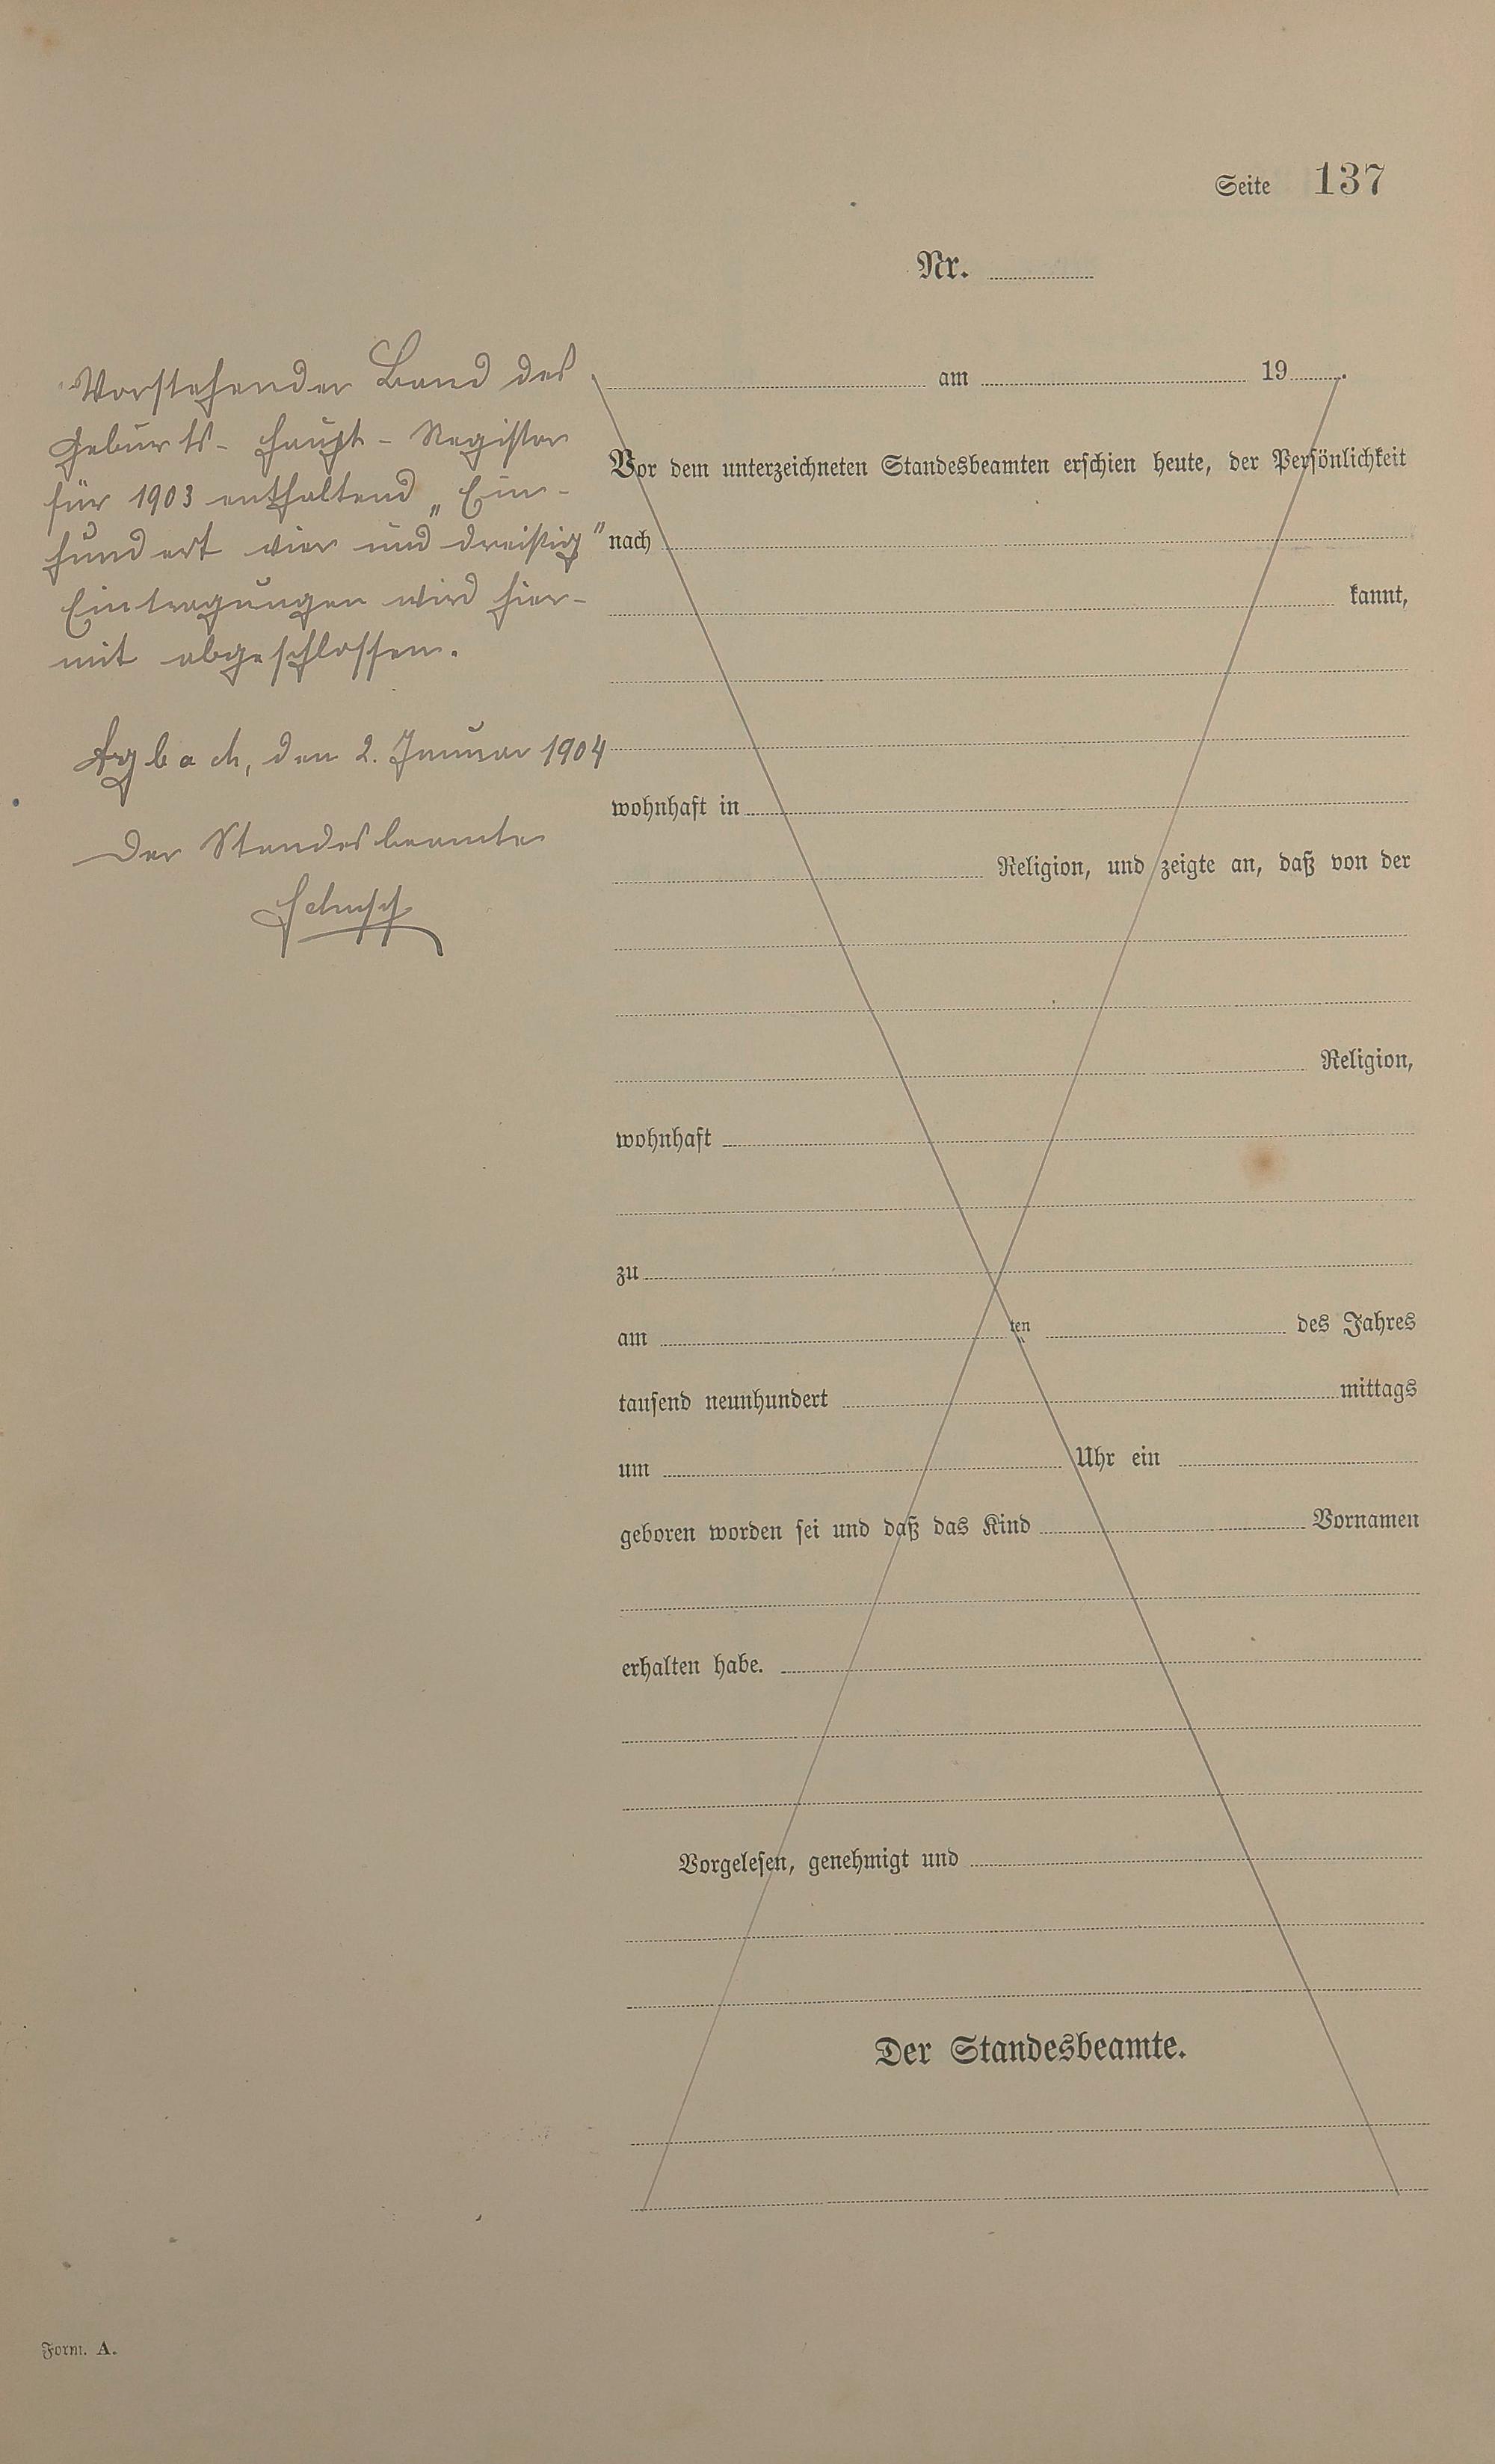 Seite 137
Nr.
Vorstehender Band des
Geburts- Haupt- Register
für 1903 enthaltend „Ein-
hundert vier und dreißig"
Eintragungen wird hier-
mit abgeschlossen.
den 2. Januar 1904
Der Standesbeamte
am 19 .
Vor dem unterzeichneten Standesbeamten erschien heute, der Persönlichkeit
nach
kannt,
wohnhaft in
Religion, und zeigte an, daß von der
Religion,
wohnhaft
zu
am ten des Jahres
tausend neunhundert mittags
um Uhr ein
geboren worden sei und daß das Kind Vornamen
erhalten habe.
Vorgelesen, genehmigt und
Der Standesbeamte.
Form. A.